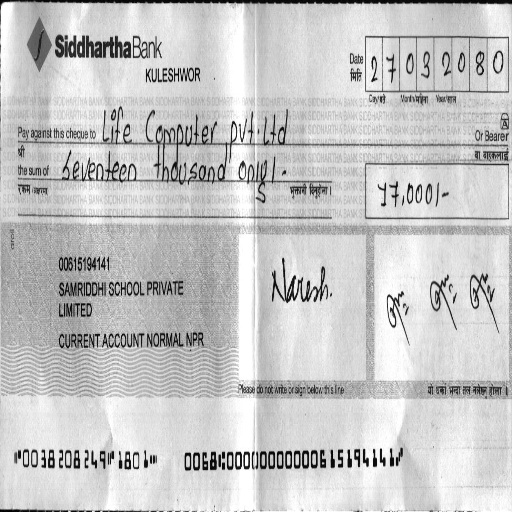 SiddharthaBank
KULESHWOR
Date
मिति
27032080
Day/गते Month/महिना Year/साल
Pay against this cheque to Life Computer pvt. Ltd
Or Bearer
श्री
वा वाहकलाई
the sum of Seventeen thousand only/-
रकम अक्षरमा
भुक्तानी दिनुहोला ।
17,000/-
00615194141
SAMRIDDHI SCHOOL PRIVATE
LIMITED
CURRENT ACCOUNT NORMAL NPR
Naresh.
Please do not write or sign below this line
यो रेखा भन्दा तल नलेख्नु होला ।
⑈0038208249⑈1801⑈ 0068⑆00000000000615194141⑈